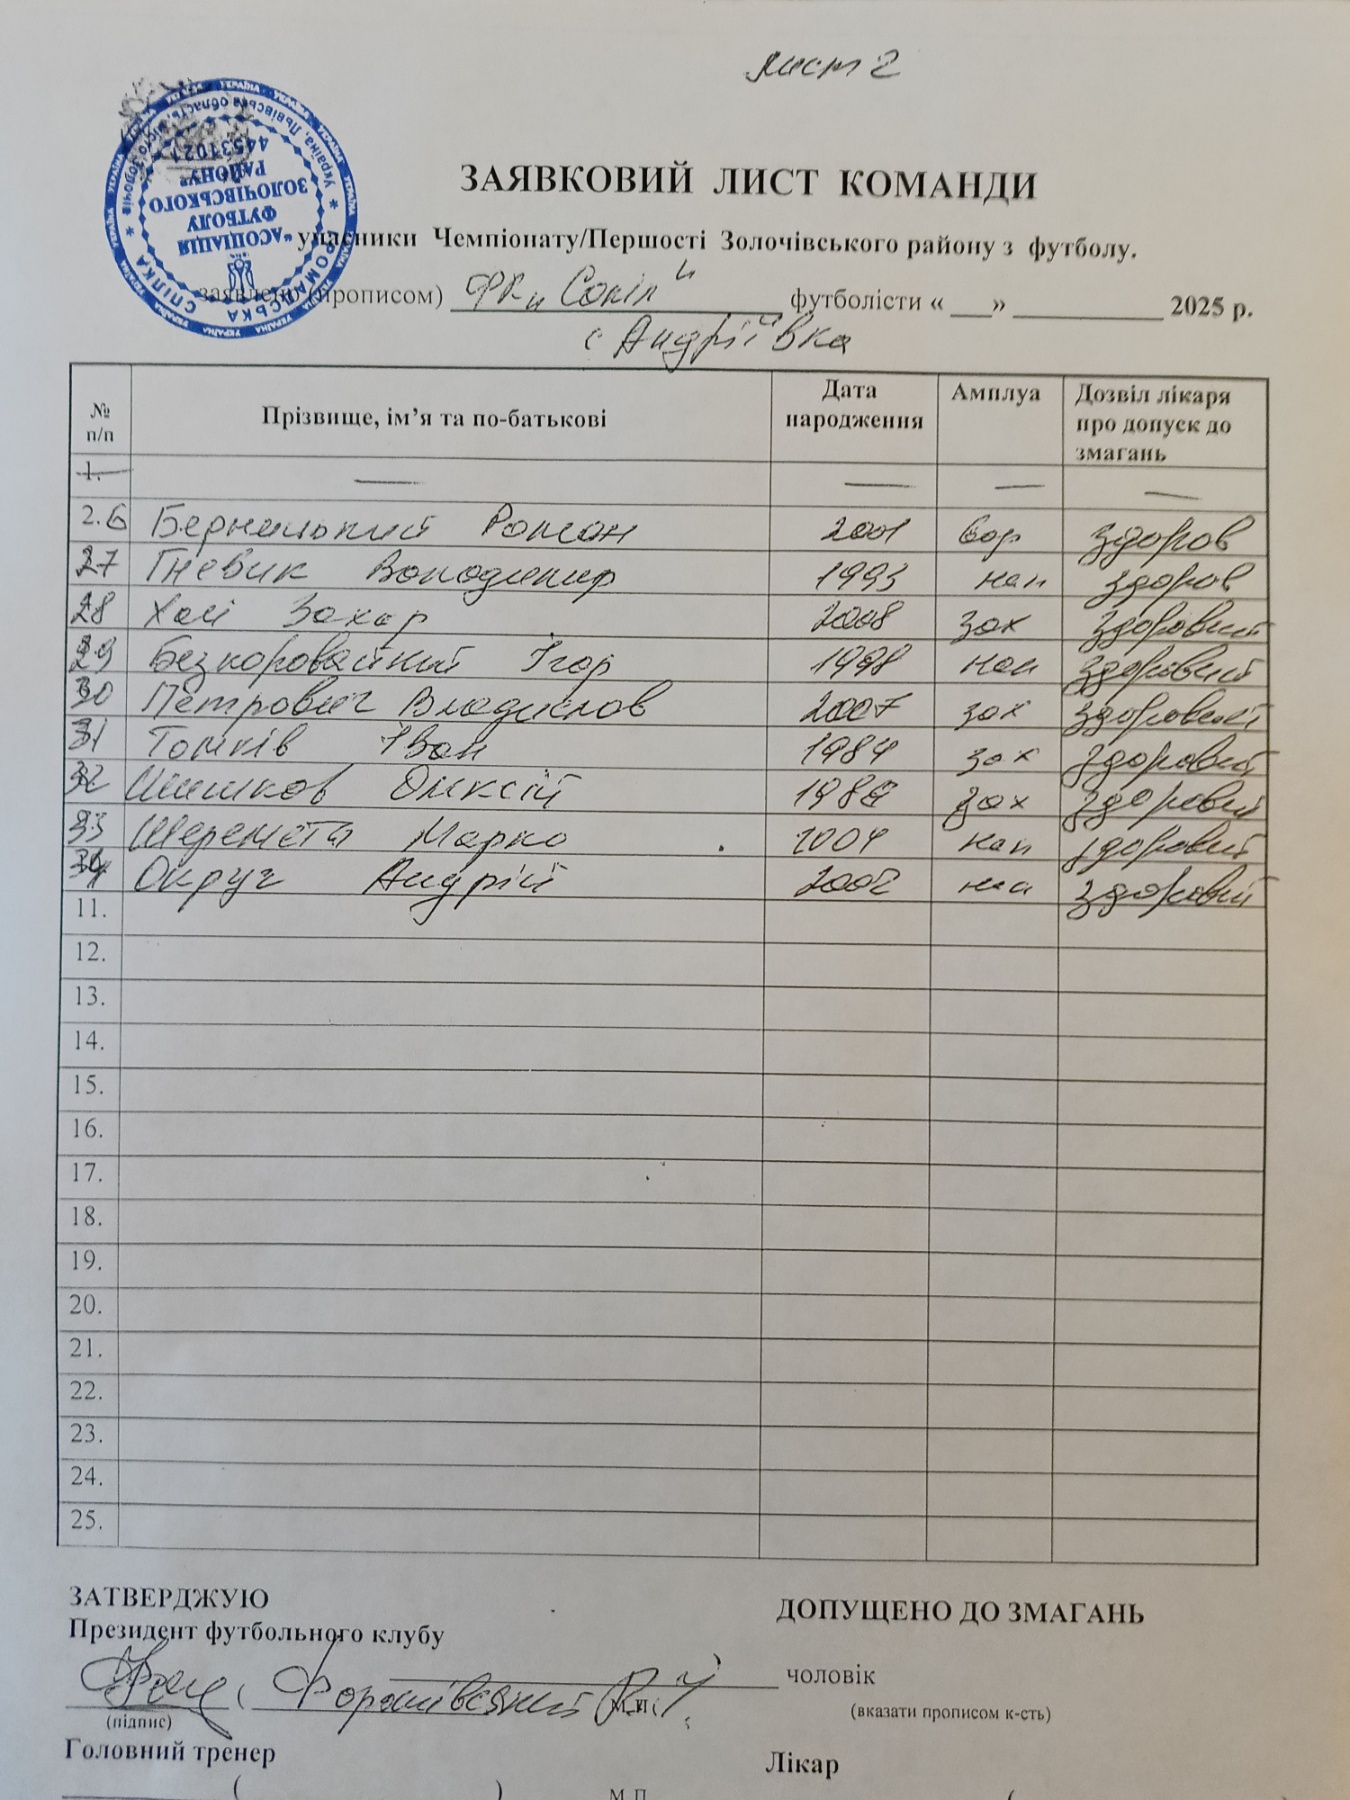 лист 2
ЗАЯВКОВИЙ ЛИСТ КОМАНДИ
учасники Чемпіонату/Першості Золочівського району з футболу.
заявлено (прописом) ФК „Сокіл" футболісти « ___» ___________ 2025 р.
с Андріївка
№ п/п Прізвище, ім’я та по-батькові Дата народження Амплуа Дозвіл лікаря про допуск до змагань
1. — — — —
2.6 Бернацький Роман 2001 вор здоров
27 Гнєвик Володимир 1993 нап здоров
28 Хай Захар 2008 зах здоровий
29 Безкоровайний Ігор 1998 нап здоровий
30 Петрович Владислав 2007 зах здоровий
31 Томків Іван 1984 зах здоровий
32 Шишков Олексій 198 зах здоровий
33 Шеремета Марко 2004 нап здоровий
34 Окруч Андрій 2002 здоровий
11.
12.
13.
14.
15.
16.
17.
18.
19.
20.
21.
22.
23.
24.
25.
ЗАТВЕРДЖУЮ
ДОПУЩЕНО ДО ЗМАГАНЬ
Президент футбольного клубу
чоловік
(підпис) М.П. (вказати прописом к-сть)
Головний тренер Лікар
( ) М.П. (
ГРОМАДСЬКА СПІЛКА
"АСОЦІАЦІЯ
ФУТБОЛУ
ЗОЛОЧІВСЬКОГО
РАЙОНУ"
44531021
Україна, Львівська область, місто Золочів
УКРАЇНА